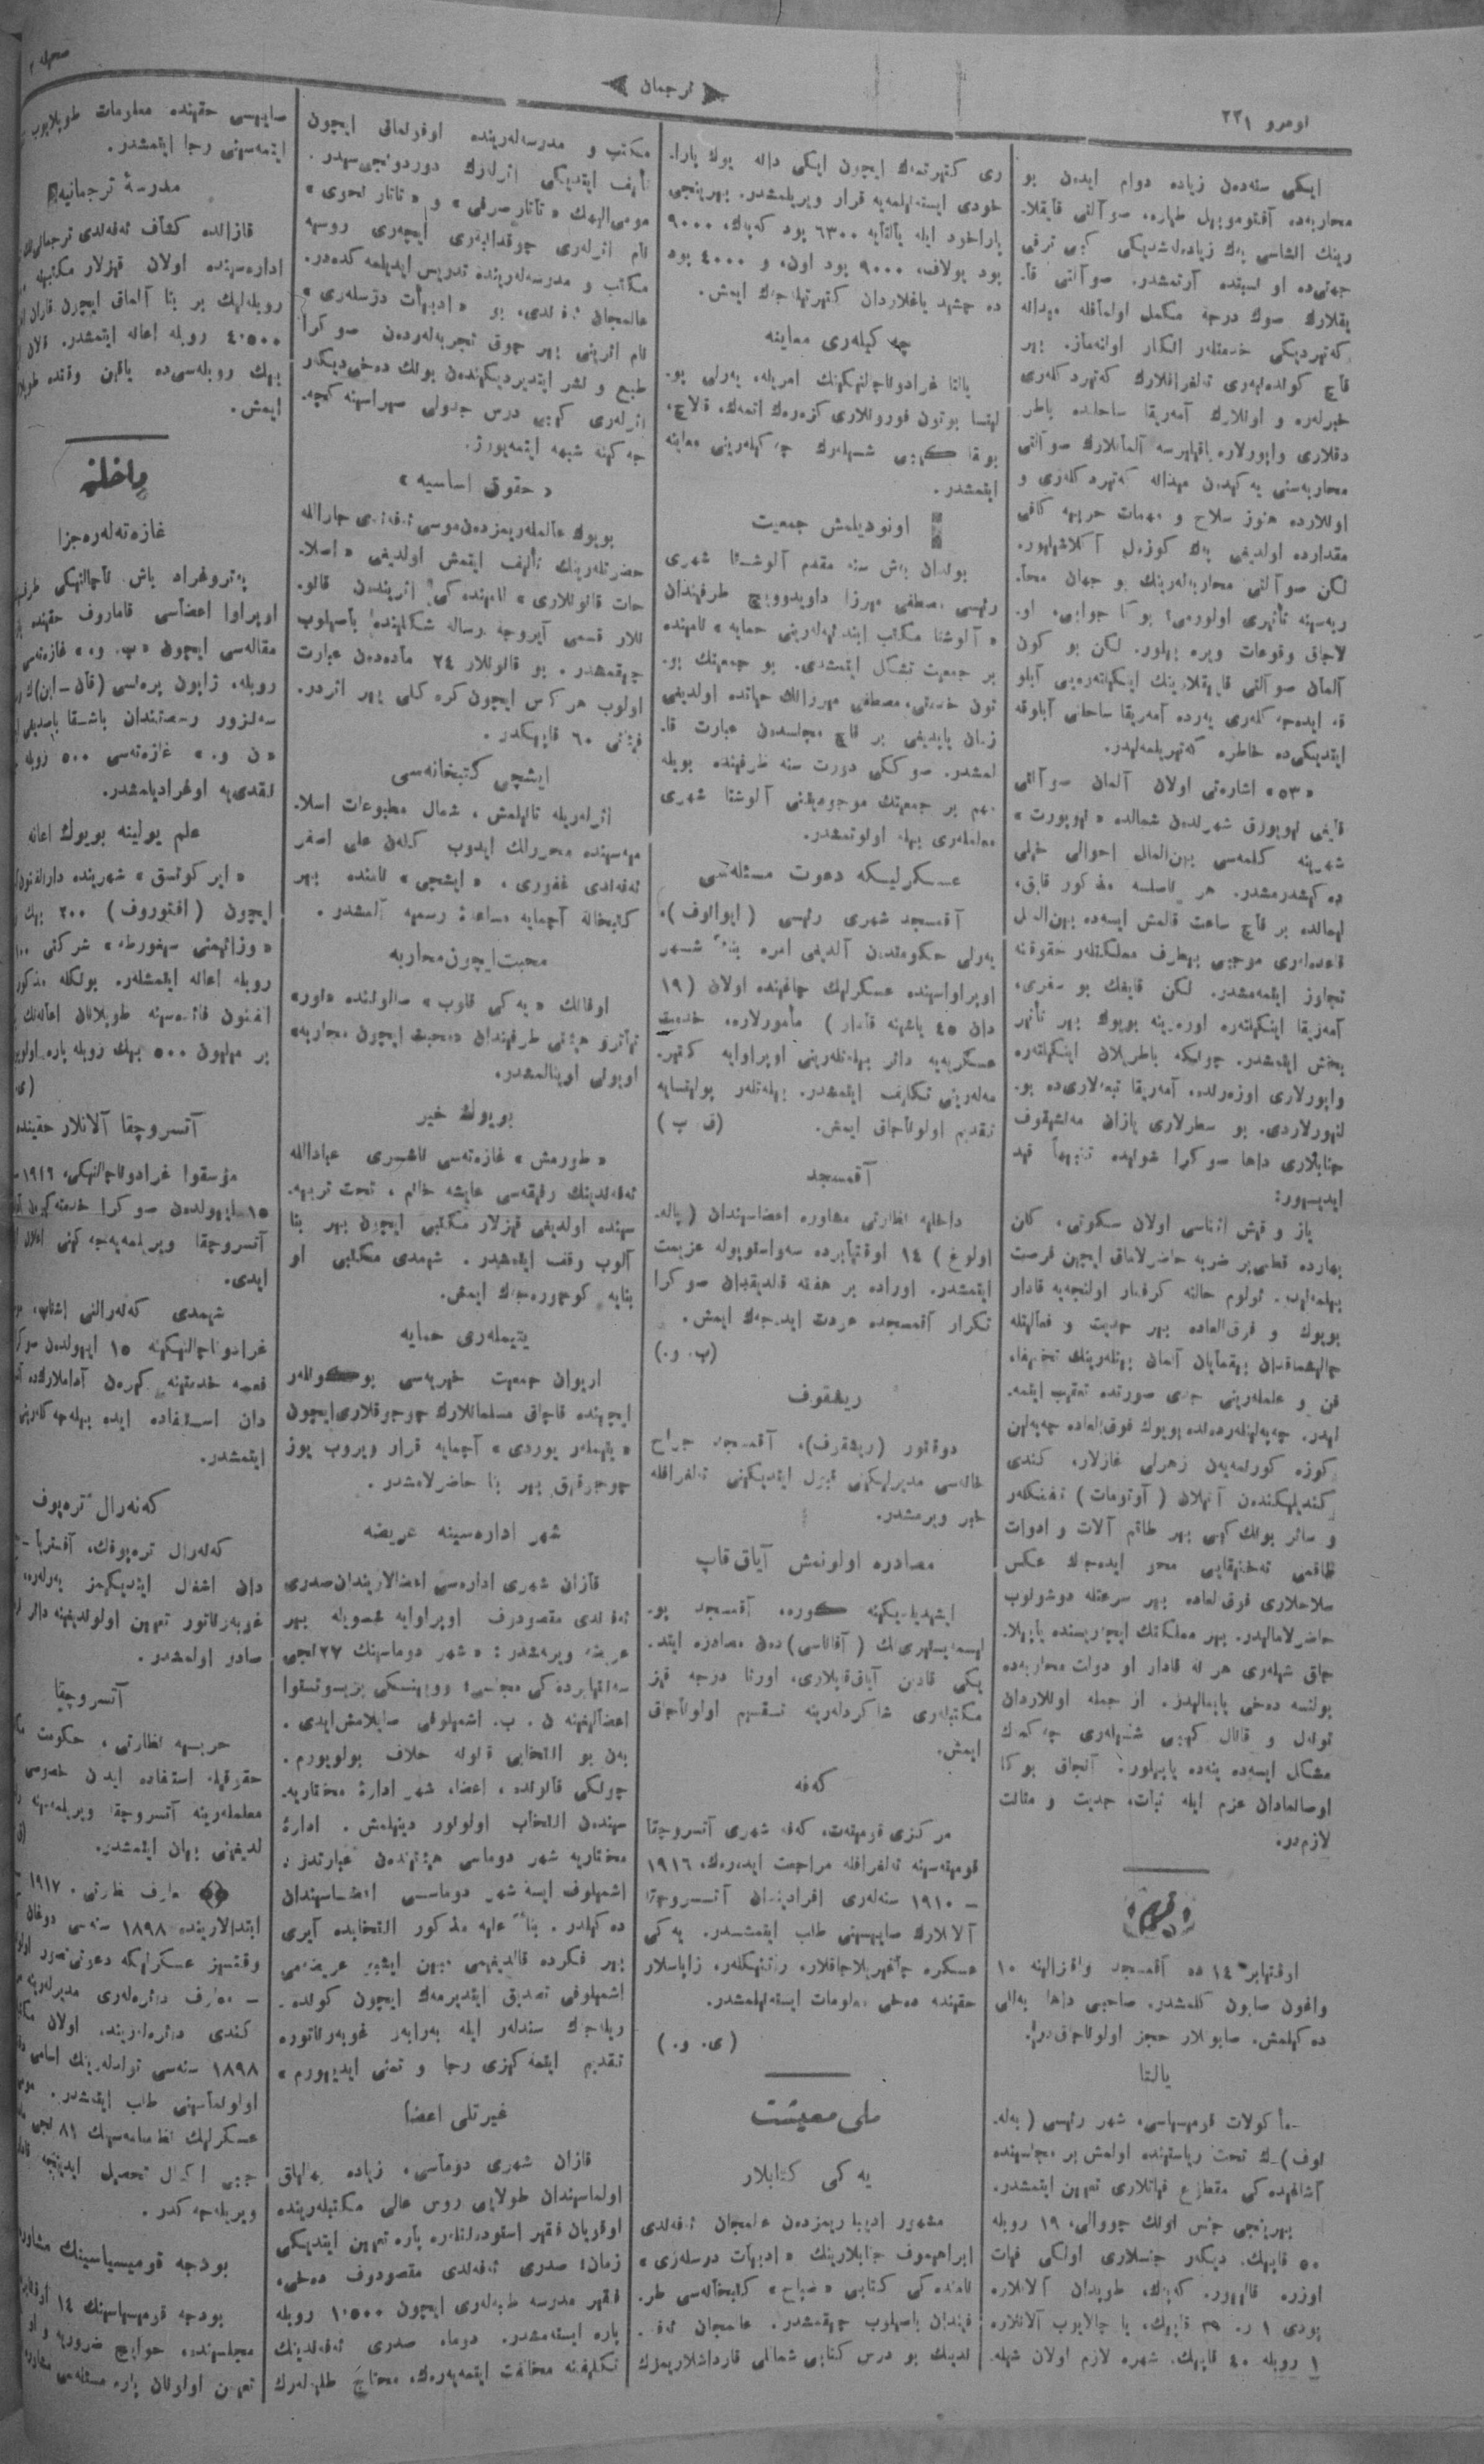 نومرو ٢٢١
ترجمان
صحیفه ٢
ایکی سنه‌دن زیاده دوام ایدن بو
محاربه‌ده آفتوموبیل طیاره، صو آلتی قایقلا-
رینك انشاسی پك زیاده‌لشدیکی کبی ترقی
جهتی‌ده او نسبتده آرتمشدر. صو آلتی قا-
یقلارك صوك درجه مکمل اولماقله میدانه
که‌تیردیکی خدمتلر انکار اولنماز. بیر
قاچ کونده‌نبه‌ری ته‌لغرافلارك که‌تیردکله‌ری
خبرله‌ره و اونلارك آمه‌ریقا ساحلنده باطر
دقلاری واپورلاره باقلیرسه آلمانلارك صو آلتی
محاربه‌سنی یه‌کیدن میدانه که‌تیردکله‌ری و
اونلارده هنوز سلاح و مهمات حربیه کافی
مقدارده اولدیغی پك کوزه‌ل آکلاشیلیور.
لکن صو آلتی محاربه‌له‌رینك بو جهان محا-
ربه‌سینه تأثیری اولورمی؟ بو کا جوابی، او-
لاجاق وقوعات ویره بیلور. لکن بو کون
آلمان صو آلتی قایقلارینك اینکیلتره‌یی آبلو
قه ایده‌جه‌کله‌ری یه‌رده آمه‌ریقا ساحلنی آبلوقه
ایتدیکی‌ده خاطره که‌تیریلمه‌لیدر.
«٥٣» اشاره‌تی اولان آلمان صو آلتی
قایغی نیویورق شهرلدن شمالده «نیوپورت»
شهرینه کلمه‌سی بین‌الملل احوالی خیلی
ده‌کیشدرمشدر. هر ناصلسه مذکور قایق،
لیمانده بر قاچ ساعت قالمش ایسه‌ده بین‌الملل
قاعده‌له‌ری موجبی بیطرف مملکتلر حقوقنه
تجاوز ایتمه‌مشدر. لکن قایغك بو سفری،
آمه‌ریقا اینکیلتره اوزه‌رینه بویوك بیر تأثیر
بخش ایتمشدر. چونکه باطریلان اینکیلتره
واپورلاری اوزه‌رنده، آمه‌ریقا تبعه‌لاری‌ده بو-
لنیورلاردی. بو سطرلاری یازان مه‌نشیقوف
جنابلاری داها صوکرا شونیده تنبیهاً قید
ایدییور:
یاز و قیش اثناسی اولان سکوتی، کان
بهارده قطعی بر ضربه حاضرلاماق ایچین فرصت
بیلمه‌لییز. ئولوم حالنه کرفتار اولنجه‌یه قادار
بویوك و فوق‌العاده بیر جدیت و فعالیتله
چالیشماقدان بیقمایان آلمان بیتله‌رینك تخنیقا،
فن و علمله‌رینی جدی صورتده تعقیب ایتمه-
لیدر. چه‌به‌لینله‌رده‌نده بویوك فوق‌العاده چه‌به‌لین
کوزه کورنمه‌یه‌ن زهرلی غازلار، کندی
کندیلیکندن آتیلان (آوتومات) تفنکلر
و سائر بونك کبی بیر طاقم آلات و ادوات
طاقمی ته‌خنیقایی محو ایده‌جك عکس
سلاحلاری فوق‌العاده بیر سرعتله دوشونوب
حاضرلامالیدر. بیر مملکتك ایچریسنده یاپیلا-
جاق شیله‌ری هر نه قادار او دولت محاربه‌ده
بولنسه ده‌خی یاپمالیدر. از جمله اونلاردان
تونه‌ل و قانال کبی شیله‌ری چه‌کمك
مشکل ایسه‌ده ینه‌ده یاپیلور. آنجاق بوکا
اوصانمادان عزم ایله ثبات، جدیت و متانت
لازم‌در.
قریم
اوقتیابر ١٤ ده آقمسجد واقزالینه ١٠
واغون صابون کلمشدر. صاحبی داها به‌للی
ده‌کیلمش. صابونلار حجز اولوناجاق‌در.
یالتا
مأکولات قومیسیاسی، شهر رئیسی (به‌له-
نوف)ك تحت ریاستینده اولمش بر مجلسینده
آشاغیده‌کی مقطوع فیاتلاری تعیین ایتمشدر.
بیرینجی جنس اونك چووالی، ١٩ روبله
٥٠ قاپیك. دیکه‌ر جنسلاری اولکی فیات
اوزره قالییور. که‌پك، طویدان آلانلاره
پودی ١ ر. ٣٥ قاپیك، یا چالایوب آلانلاره
١ روبله ٤٠ قاپیك. شهره لازم اولان شیله-
ری کتیرتمك ایچون ایکی دانه یوك پارا-
خودی ایسته‌نیلمه‌یه قرار ویریلمشدر. بیرینجی
پاراخود ایله یالتایه ٦٣٠٠ پود که‌پك، ٩٠٠٠
پود پولاف، ٩٠٠٠ پود اون، و ٤٠٠٠ پود
ده چمشید یاغلاردان کتیرتیله‌جك ایمش.
چه‌کیله‌ری معاینه
یالتا غرادوناچالنیکینك امریله، یه‌رلی پو-
لیتسا بوتون قورونلاری کزه‌ره‌ك اتمه‌ك، قالاچ،
بوقا کبی شیله‌رك چه‌کیله‌رینی معاینه
ایتمشدر.
اونودیلمش جمعیت
بوندان بش سنه مقدم آلوشتا شهری
رئیسی مصطفی میرزا داویدوویچ طرفیندان
«آلوشتا مکتب ابتدائیه‌له‌رینی حمایه» نامینده
بر جمعیت تشکل ایتمشدی. بو جمعیتك بو-
تون خدمتی، مصطفی میرزانك حیاتده اولدیغی
زمان یاپدیغی بر قاچ مجلسدن عبارت قا-
لمشدر. صوککی دورت سنه ظرفینده بویله
مهم بر جمعیتك موجودیتنی آلوشتا شهری
معلمله‌ری بیله اونوتمشدر.
عسکرلیکه دعوت مسئله‌سی
آقمسجد شهری رئیسی (ایوانوف)،
یه‌رلی حکومتدن آلدیغی امره بناءً شهر
اوپراواسینده عسکرلیك چاغینده اولان (١٩
دان ٤٥ یاشینه قادار) مأمورلاره، خدمت
عسکریه‌یه دائر بیله‌تله‌رینی اوپراوایه کتیر-
مه‌له‌رینی تکلیف ایتمشدر. بیله‌تلر پولیتسایه
تقدیم اولوناجاق ایمش. (ق پ)
آقمسجد
داخلیه نظارتی مشاوره اعضاسیندان (پاله-
اولوغ) ١٤ اوقتیابرده سه‌واستوپوله عزیمت
ایتمشدر. اوراده بر هفته قالدیقدان صوکرا
تکرار آقمسجده عودت ایده‌جك ایمش.
(پ. و.)
ریشقوف
دوقتور (ریشقوف)، آقمسجد جراح
خانه‌سی مدیرلیکنی قبول ایتدیکینی ته‌لغرافله
خبر ویرمشدر.
مصادره اولونمش آیاق قاپ
ایشیدیلدیکینه کوره، آقمسجد پو-
لیسمایستیری‌نك (آفاناسی) دن مصادره ایتد-
یکی قادین آیاق‌قابلاری، اورتا درجه قیز
مکتبله‌ری شاکردله‌رینه تقسیم اولوناجاق
ایمش.
که‌فه
مرکزی قومیته‌ت، که‌فه شهری آتسروچقا
قومیته‌سینه ته‌لغرافله مراجعت ایده‌ره‌ك، ١٩١٦
— ١٩١٠ سنه‌له‌ری افرادیندان آتسروچقا
آلانلارك صاییسینی طلب ایتمشدر. یه‌کی
عسکره چاغیریلاجاقلار، راتنیکلر، زاپاسلار
حقینده ده‌خی معلومات ایسته‌نیلمشدر.
(ی. و.)
ملی معیشت
یه‌کی کتابلار
مشهور ادیبلاریمزدن عالمجان ئه‌فه‌ندی
ابراهیموف جنابلارینك «ادبیات درسله‌ری»
نامنده‌کی کتابی «صباح» کتبخانه‌سی طر-
فیندان باصیلوب چیقمشدر. عالمجان ئه‌فه-
ندینك بو درس کتابی شمالی قارداشلاریمزك
مکتب و مدرسه‌له‌رینده اوقونماق ایچون
تألیف ایتدیکی اثرلرك دوردونجی‌سیدر.
مومی‌الیهك «تاتار صرفی» و «تاتار نحوی»
نام اثرله‌ری چوقدانبه‌ری ایچه‌ری روسیه
مکتب و مدرسه‌له‌رینده تدریس ایدیلمه‌کده‌در.
عالمجان ئه‌فه‌ندی، بو «ادبیات درسله‌ری»
نام اثرینی بیر چوق تجربه‌له‌ردن صوکرا
طبع و نشر ایتدیردیکیندن بونك ده‌خی دیکه‌ر
اثرله‌ری کبی درس جدولی صیراسینه کچه-
جه‌کینه شبهه ایتمه‌یورز.
«حقوق اساسیه»
بویوك عالمله‌ریمزدن موسی ئه‌فه‌ندی جارالله
حضرتله‌رینك تألیف ایتمش اولدیغی «اصلا-
حات قانونلاری» نامینده‌کی اثریندن قانو-
نلار قسمی آیروجه رساله شکلینده باصیلوب
چیقمشدر. بو قانونلار ٢٤ ماده‌دن عبارت
اولوب هر کس ایچون کره‌کلی بیر اثردر.
فیئاتی ٦٠ قاپیکدر.
ایشچی کتبخانه‌سی
اثرله‌ریله تانیلمش، شمال مطبوعات اسلا-
میه‌سینده محررلك ایدوب کلن علی اصغر
ئه‌فه‌ندی غفوری، «ایشچی» نامنده بیر
کتبخانه آچمایه مساعدۀ رسمیه آلمشدر.
محبت ایچون محاربه
اوفانك «یه‌کی قلوب» صالونده «نور»
تیاترو هیئتی طرفیندان «محبت ایچون محاربه»
اویونی اوینالمشدر.
بویوك خیر
«طورمش» غازه‌ته‌سی ناشری عبادالله
ئه‌فه‌ندینك رفیقه‌سی عایشه خانم، تحت تربیه-
سینده اولدیغی قیزلار مکتبی ایچون بیر بنا
آلوب وقف ایتمشدر. شیمدی مکتبی او
بنایه کوچوره‌جك ایمش.
یتیمله‌ری حمایه
اریوان جمعیت خیریه‌سی بو کونلر
ایچینده قاچاق مسلمانلارك چوجوقلاری ایچون
«یتیملر یوردی» آچمایه قرار ویروب یوز
چوجوقلق بیر بنا حاضرلامشدر.
شهر اداره‌سینه عریضه
قازان شهری اداره‌سی اعضالاریندان صدری
ئه‌فه‌ندی مقصودوف اوپراوایه شویله بیر
عریضه ویرمشدر: «شهر دوماسینك ٢٧نجی
سه‌نتیابرده‌کی مجلسی؛ ووینسکی پریسوتستوا
اعضالیغینه ن. ب. اشمیلوفی صایلامش‌ایدی.
به‌ن بو انتخابی قانونه خلاف بولویورم.
چونکی قانونده، اعضاء شهر ادارۀ مختاریه-
سیندن انتخاب اولونور دینیلمش. ادارۀ
مختاریه شهر دوماسی هیئتیندن عبارتدر؛
اشمیلوف ایسه شهر دوماسی اعضاسیندان
ده‌کیلدر. بناءً علیه مذکور انتخابده آیری
بیر فکرده قالدیغیمی مبین ایشبو عریضه‌می
اشمیلوفی تصدیق ایتدیرمه‌ك ایچون کونده-
ریله‌جك سندلر ایله به‌رابه‌ر غوبه‌رناتوره
تقدیم ایتمه‌کیزی رجا و تمنی ایدییورم»
غیرتلی اعضا
قازان شهری دوماسی، زیاده بهالیق
اولماسیندان طولایی روس عالی مکتبله‌رینده
اوقویان فقیر استودنتلره پاره تعیین ایتدیکی
زمان؛ صدری ئه‌فه‌ندی مقصودوف ده‌خی،
فقیر مدرسه طلبه‌له‌ری ایچون ١٥٠٠ روبله
پاره ایسته‌مشدر. دوما، صدری ئه‌فه‌ندینك
تکلیفینه مخالفت ایتمه‌یه‌ره‌ك، محتاج طلبه‌له‌رك
صاییسی حقینده معلومات طوپلایوب
ایتمه‌سینی رجا ایتمشدر.
مدرسۀ ترجمانیه
قازانده کشاف ئه‌فه‌ندی ترجمانی‌نك
اداره‌سینده اولان قیزلار مکتبینه
روبله‌لیك بر بنا آلماق ایچون قازان
٤٠٥٠٠ روبله اعانه ایتمشدر. قالان
بیك روبله‌سی‌ده یاقین وقتده
ایمش.
داخلیه
غازه‌ته‌له‌ره جزا
په‌تروغراد باش ناچالنیکی
اوپراوا اعضاسی قاماروف حقینده
مقاله‌سی ایچون «پ. و.» غازه‌ته‌سی
روبله، ژاپون پره‌نسی (قان-این)ك
سه‌نزور رخصتندان باشقا باصدیغی
«ن و.» غازه‌ته‌سی ٥٠٠ روبله
نقدی‌یه اوغرادیلمشدر.
علم یولینه بویوك اعانه
«ایرکوتسق» شهرینده دارالفنون
ایچون (افتوروف) ٢٠٠ بیك
«وزائیمنی سیغورطه» شرکتی ١٠٠
روبله اعانه ایتمشلر. بونکله مذکور
الفنون فائده‌سینه طوپلانان اعانه‌نك
بر میلیون ٥٠٠ بیك روبله پاره
(ی.
آتسروچقا آلانلار حقینده
مۇسقوا غرادوناچالنیکی، ١٩١٦
١٥ اییولدن صوکرا خدمته کیرن
آتسروچقا ویریلمه‌یه‌جه‌کینی اعلان
ایدی.
شیمدی که‌نه‌رالنی اشتاب،
غرادوناچالنیکینه ١٥ اییولدن صوکرا
قعمه خدمتینه کیرن آداملارك‌ده
دان استفاده ایده بیله‌جه‌کله‌رینی
ایتمشدر.
که‌نه‌رال تره‌پوف
که‌نه‌رال تره‌پوفك، آقستریا
دان اشغال ایتدیکیمز یه‌رله‌ره،
غوبه‌رناتور تعیین اولوندیغینه دائر
صادر اولمشدر.
آتسروچقا
حربیه نظارتی، حکومت
حقوقیله استفاده ایدن خصوصی
معلمله‌رینه آتسروچقا ویریلمه‌یینه
لدیغنی بیان ایتمشدر.
معارف نظارتی، ١٩١٧
ابتدالارینده ١٨٩٨ سنه‌سی دوغان
وقتسیز عسکرلیکه دعوتی
— معارف دائره‌له‌ری مدیرله‌رینه
کندی دائره‌له‌رینده اولان
١٨٩٨ سنه‌سی توللدله‌رینك اسامی
اولونماسینی طلب ایتمشدر.
عسکرلیك نظامنامه‌سینك ٨١ نجی
جبی اکمال تحصیل ایدینجه
ویریله‌جه‌کدر.
بودجه قومیسیاسینك
بودجه قومیسیاسینك ١٤
مجلسینده، حوایج ضروریه
تعیین اولونان پاره مسئله‌سی